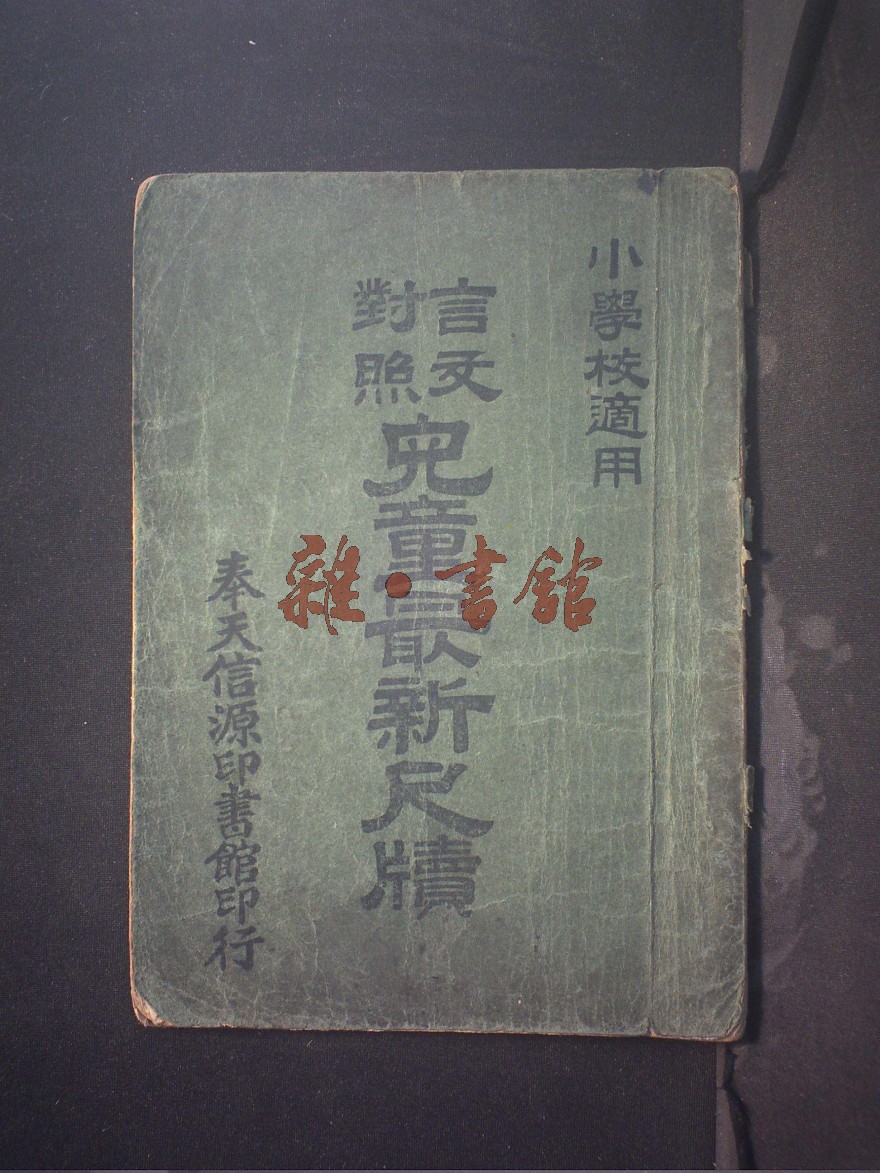 小學校適用
言文
對照
兒童最新尺牘
奉天信源印書館印行
雜·書館